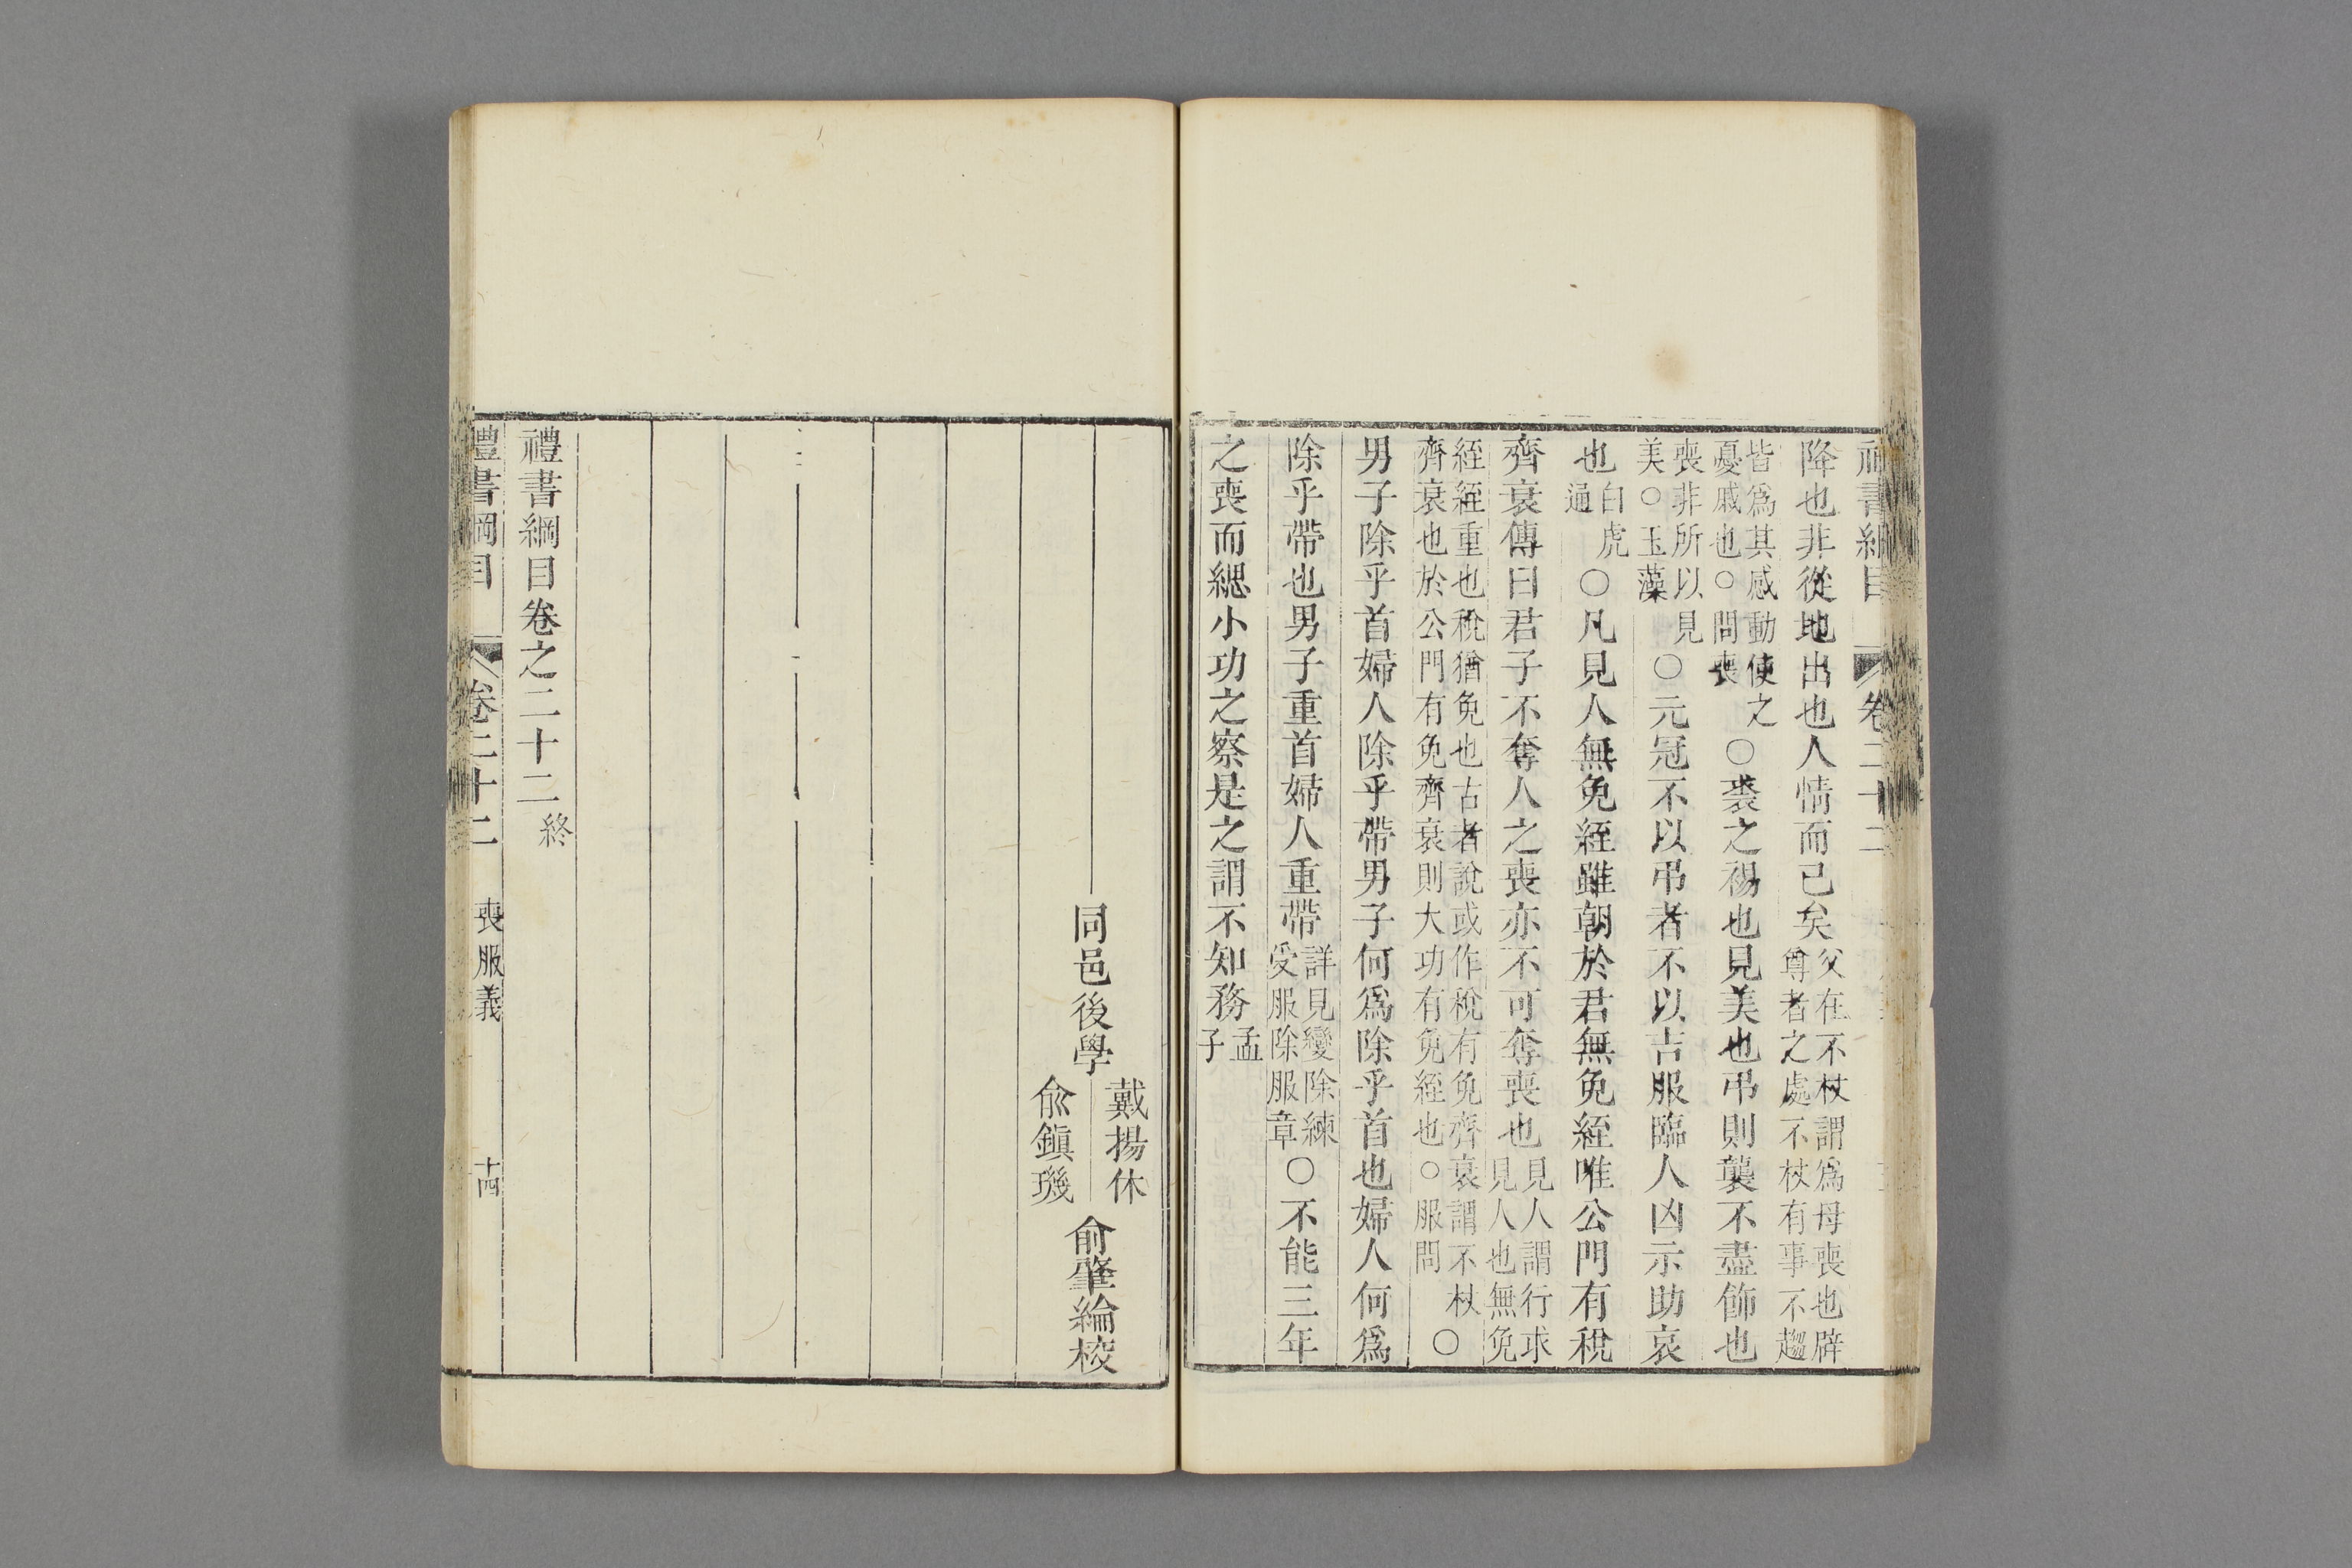 禮書綱目 卷二十二
降也非從地出也人情而已矣父在不杖謂爲母喪也辟尊者之處不杖有事不趨
皆爲其感動使之憂戚也○問喪○裘之裼也見美也弔則襲不盡飾也
喪非所以見美○玉藻○元冠不以弔者不以吉服臨人凶示助哀
也白虎通○凡見人無免絰雖朝於君無免絰唯公門有稅
齊衰傳曰君子不奪人之喪亦不可奪喪也見人謂行求見人也無免
絰絰重也稅猶免也古者說或作稅有免齊衰謂不杖齊衰也於公門有免齊衰則大功有免絰也○服問○
男子除乎首婦人除乎帶男子何爲除乎首也婦人何爲
除乎帶也男子重首婦人重帶詳見變除練受服除服章○不能三年
之喪而緦小功之察是之謂不知務孟子
同邑後學戴揚休俞鎭璣俞肇綸校
禮書綱目卷之二十二終
禮書綱目 卷二十二 喪服義 十四